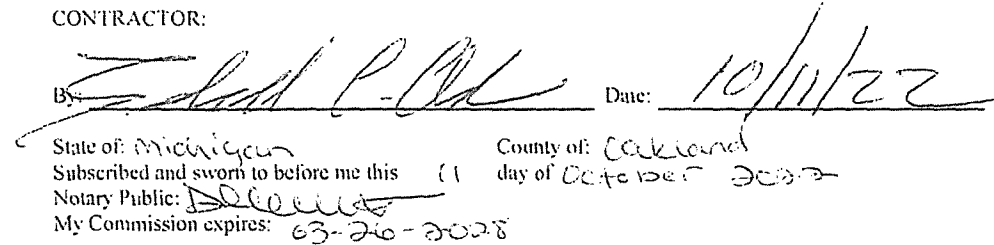 CONTRACTOR:
By: Date: 10/11/22
State of: Michigan County of: Oakland
Subscribed and sworn to before me this 11 day of October 2022
Notary Public:
My Commission expires: 03-26-2028